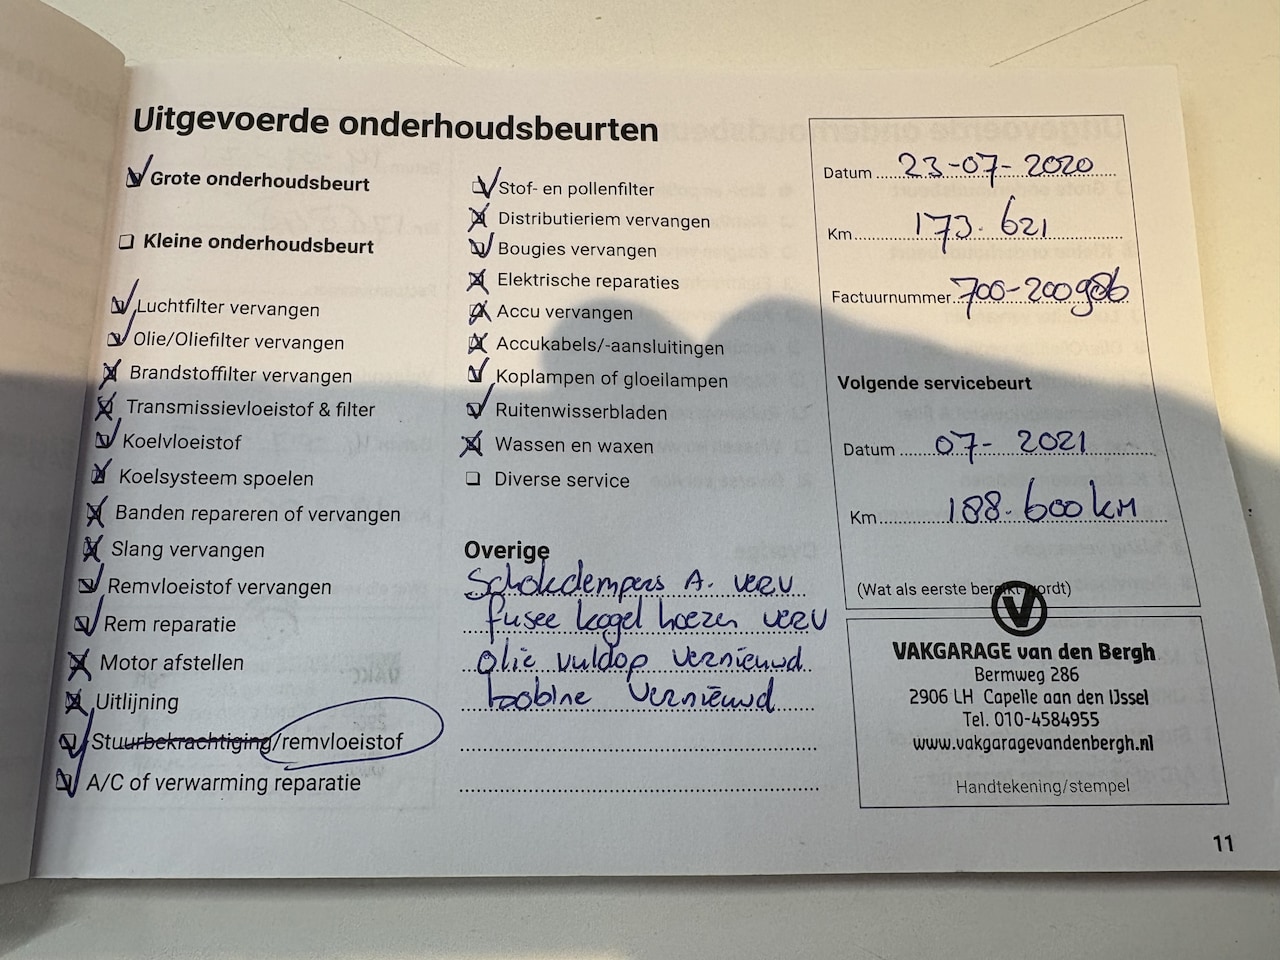 Uitgevoerde onderhoudsbeurten
Grote onderhoudsbeurt
Kleine onderhoudsbeurt
Luchtfilter vervangen
Olie/Oliefilter vervangen
Brandstoffilter vervangen
Transmissievloeistof & filter
Koelvloeistof
Koelsysteem spoelen
Banden repareren of vervangen
Slang vervangen
Remvloeistof vervangen
Rem reparatie
Motor afstellen
Uitlijning
Stuurbekrachtiging/remvloeistof
A/C of verwarming reparatie
Stof- en pollenfilter
Distributieriem vervangen
Bougies vervangen
Elektrische reparaties
Accu vervangen
Accukabels/-aansluitingen
Koplampen of gloeilampen
Ruitenwisserbladen
Wassen en waxen
Diverse service
Overige
Schokdempers A. verv
fusee kogel hoezen verv
Olie vuldop vernieuwd
bobine vernieuwd
Datum 23-07-2020
Km 173.621
Factuurnummer 700-200986
Volgende servicebeurt
Datum 07-2021
Km 188.600 km
(Wat als eerste bereikt wordt)
VAKGARAGE van den Bergh
Bermweg 286
2906 LH Capelle aan den IJssel
Tel. 010-4584955
www.vakgaragevandenbergh.nl
Handtekening/stempel
11